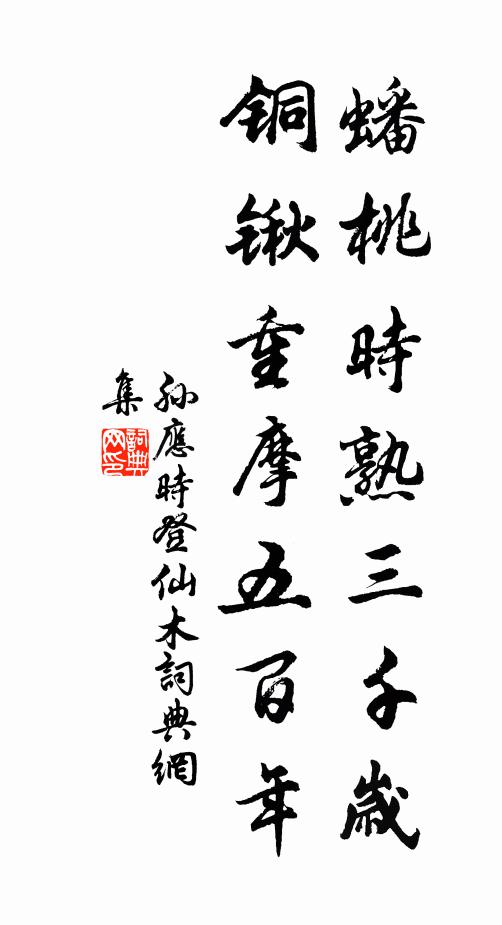 蟠桃時熟三千歲
铜锹重摩五百年
孫應時登仙木詞典網
集
詞典
网印